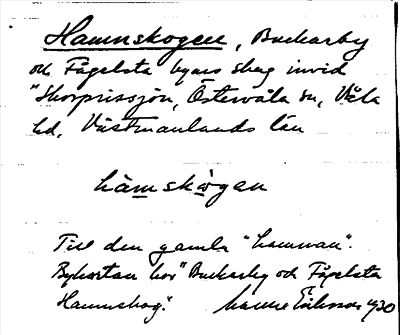 Hamnskogen, Buckarby
och Fågelsta byars skog invid
"Skorprissjön, Östervåla sn, Våla
hd, Västmanlands län
hàmskògan
Till den gamla "hamnan".
Bykartan har "Buckarby och Fågelsta
Hamnskog". Eriksson 1930